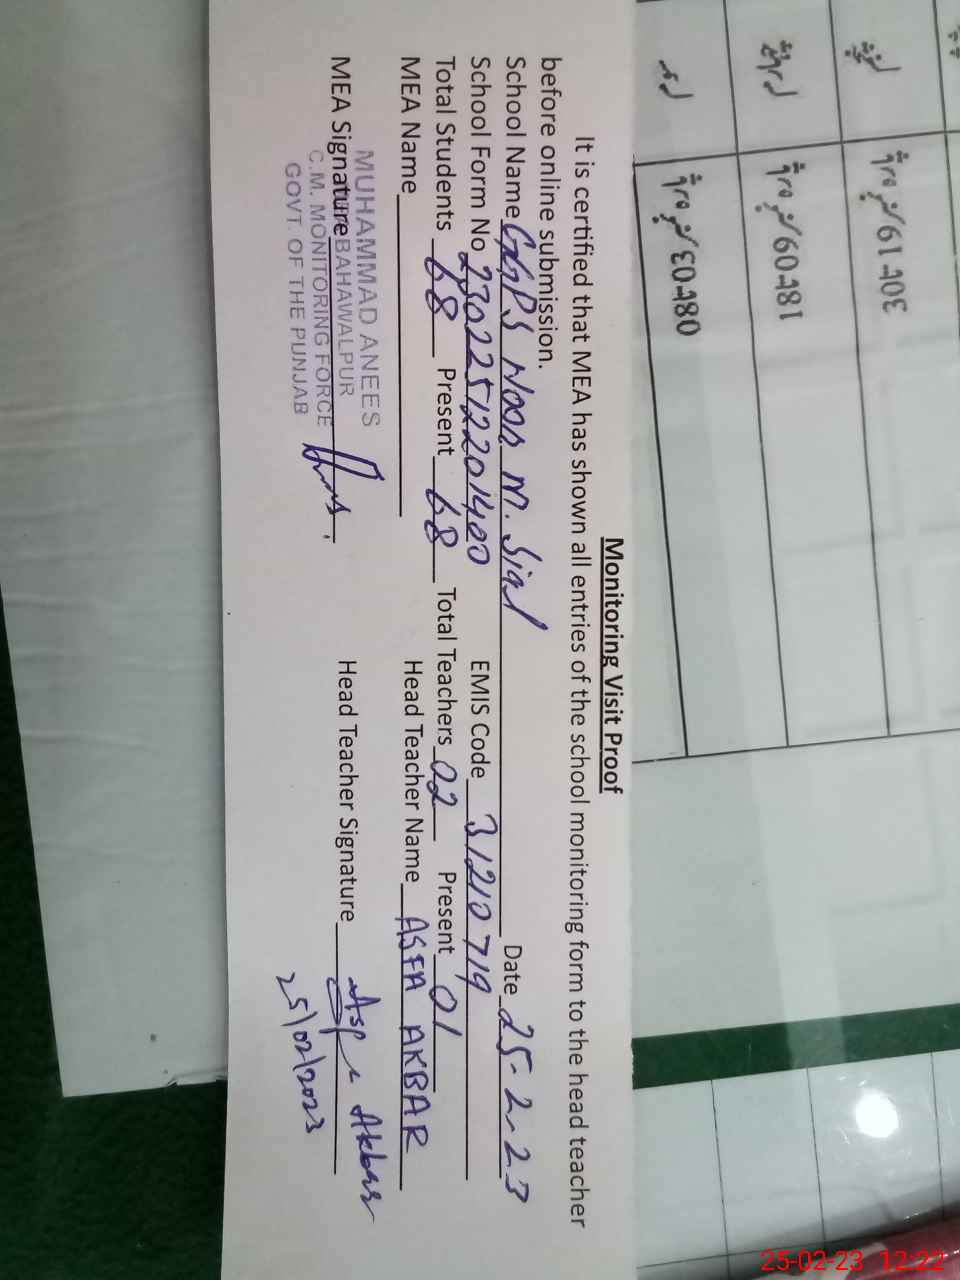 Monitoring Visit Proof
It is certified that MEA has shown all entries of the school monitoring form to the head teacher
before online submission.
School Name GGPS Noor M. Sial Date 25-2-23
School Form No 230225122201400 EMIS Code 31210719
Total Students 68 Present 68 Total Teachers 02 Present 01
MEA Name Head Teacher Name ASFA AKBAR
MEA Signature Head Teacher Signature Asfa Akbar
25/02/2023
MUHAMMAD ANEES
BAHAWALPUR
C.M. MONITORING FORCE
GOVT. OF THE PUNJAB
25-02-23 12:22